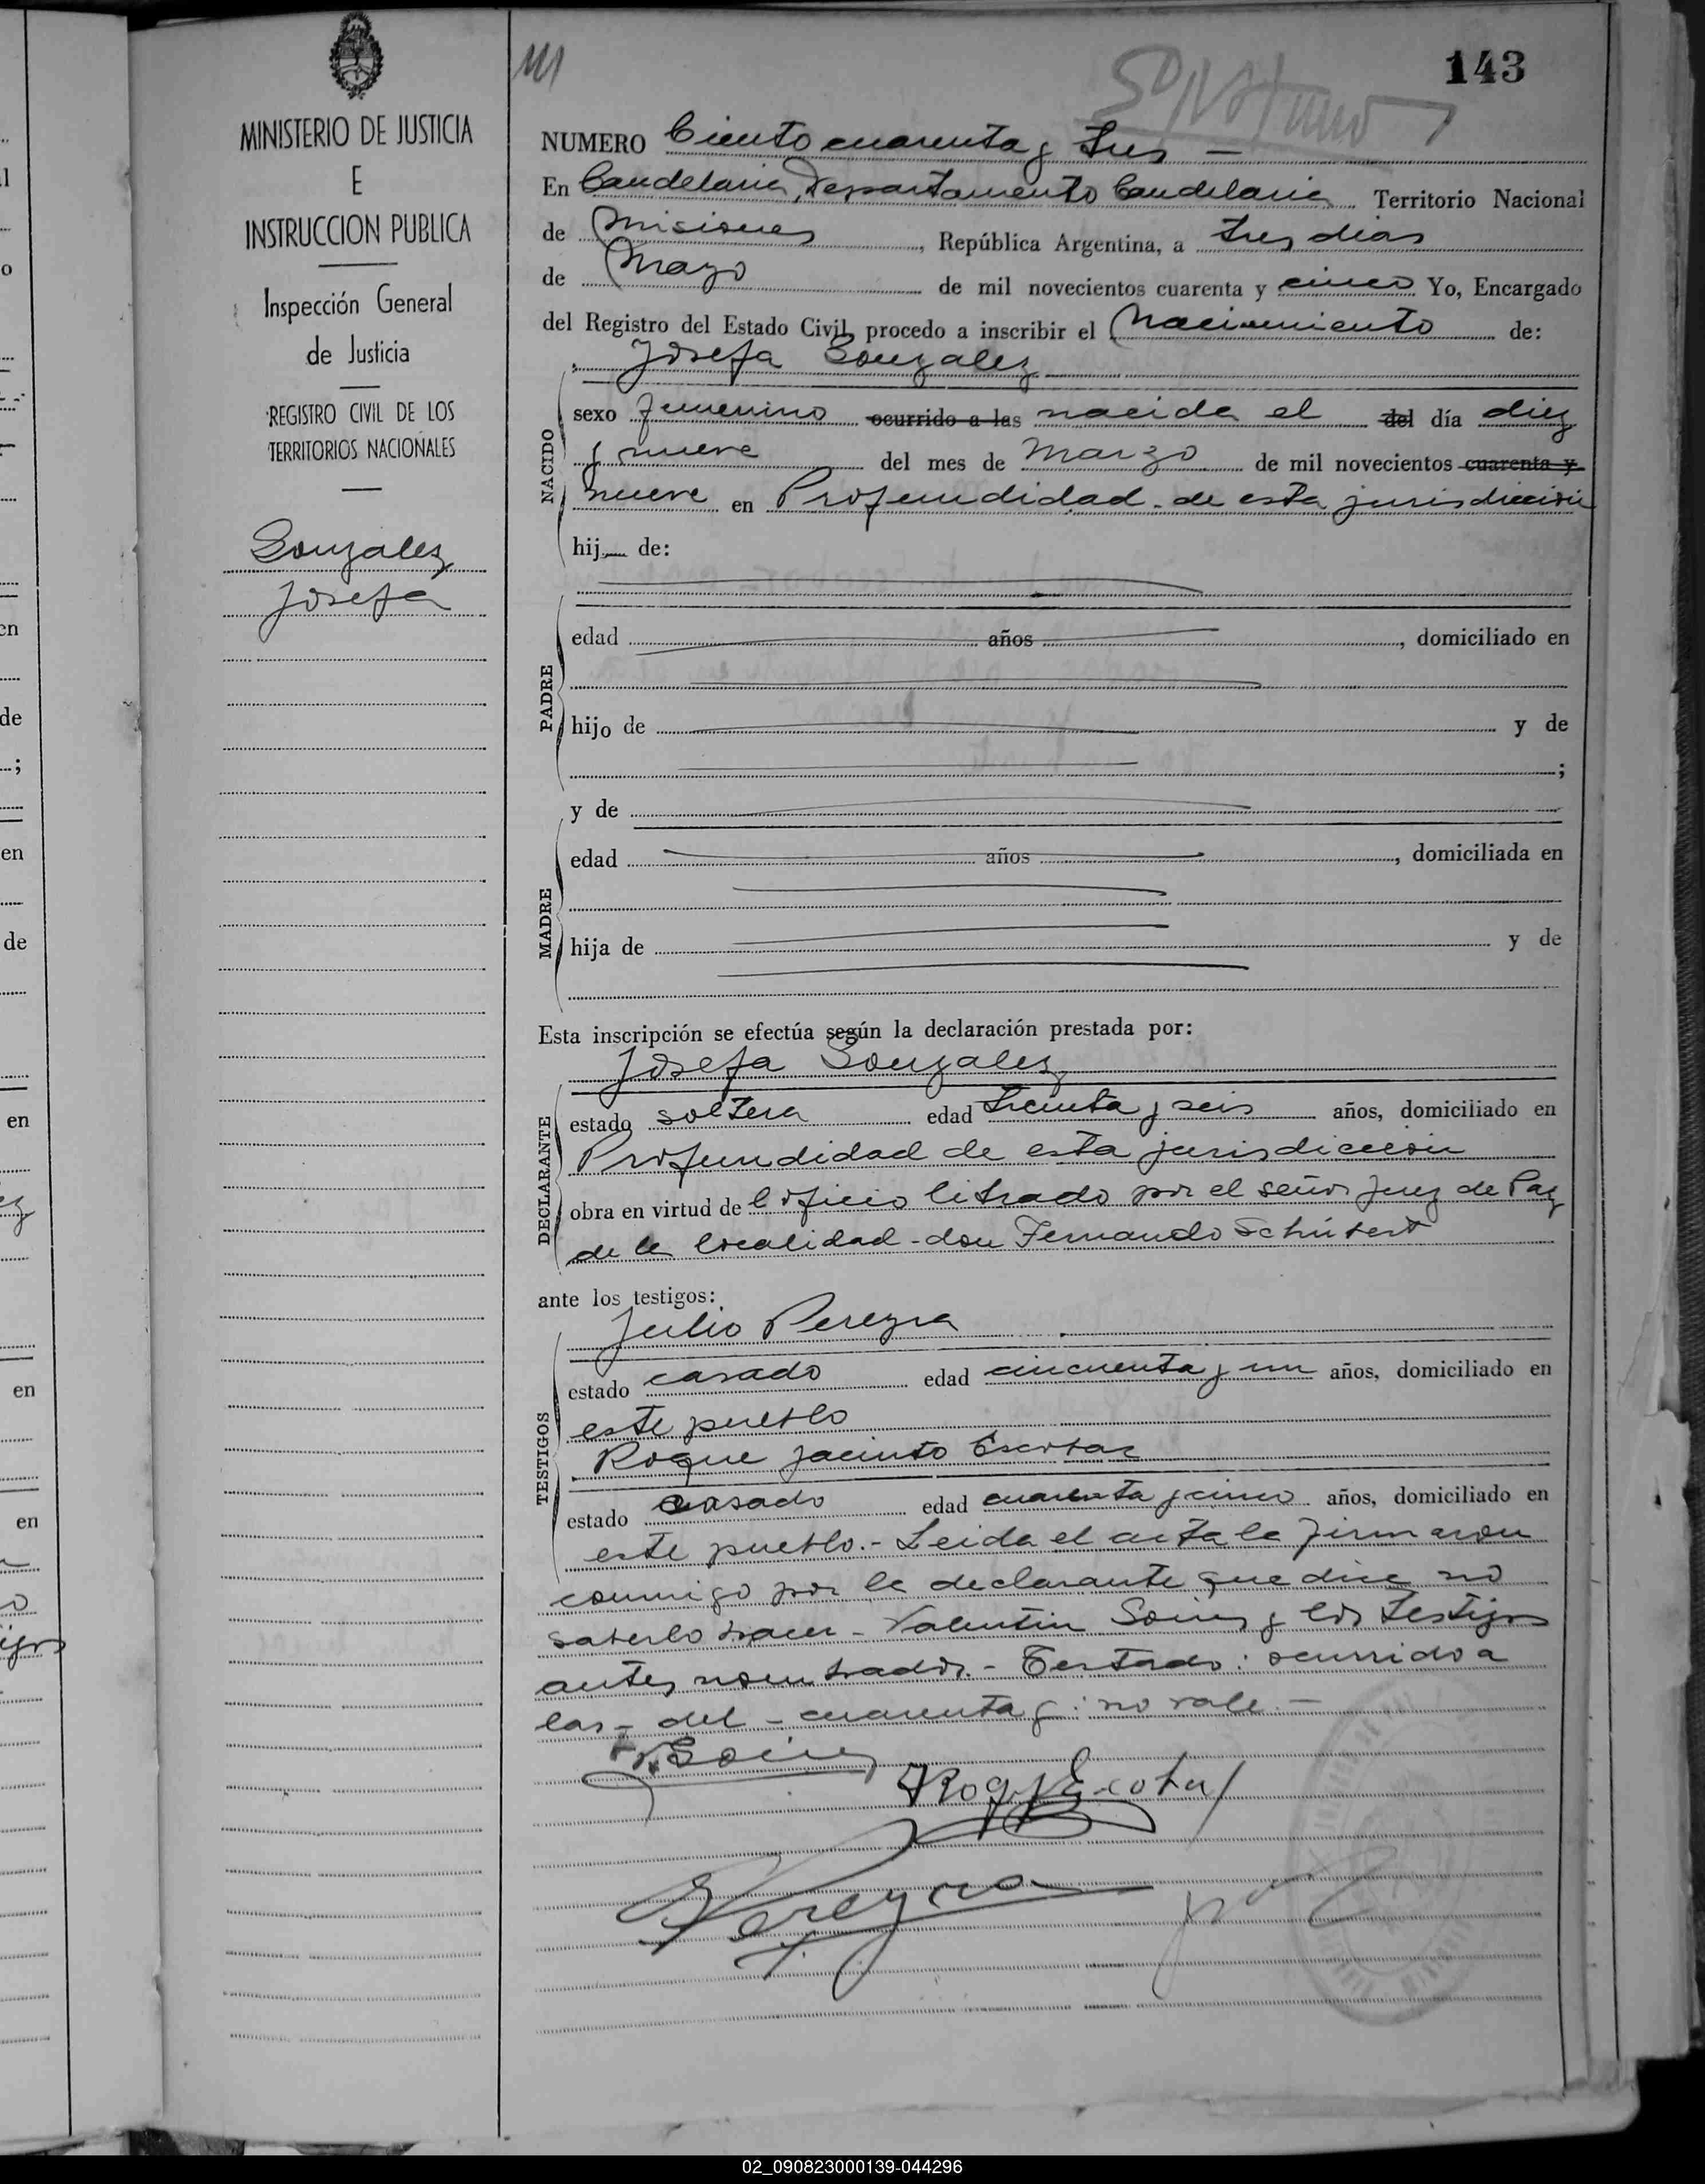 143
MINISTERIO DE JUSTICIA
E
INSTRUCCION PUBLICA
Inspección General
de Justicia
REGISTRO CIVIL DE LOS
TERRITORIOS NACIONALES
Gonzalez
Josefa
NUMERO Ciento cuarenta y tres —
En Candelaria, Departamento Candelaria Territorio Nacional
de Misiones, República Argentina, a tres dias
de Mayo de mil novecientos cuarenta y cinco Yo, Encargado
del Registro del Estado Civil, procedo a inscribir el Nacimiento de:
Josefa Gonzalez
NACIDO
sexo femenino ocurrido a las nacida el del día diez
y nueve del mes de Marzo de mil novecientos cuarenta y
nueve en Profundidad - de esta jurisdiccion
hij de:
PADRE
edad años, domiciliado en
hijo de y de
;
y de
MADRE
edad años, domiciliada en
hija de y de
Esta inscripción se efectúa según la declaración prestada por:
Josefa Gonzalez
DECLARANTE
estado soltera edad treinta y seis años, domiciliado en
Profundidad de esta jurisdiccion
obra en virtud de l oficio librado por el señor Juez de Paz
de la localidad - don Fernando Schubert
ante los testigos:
Julio Pereyra
TESTIGOS
estado casado edad cincuenta y un años, domiciliado en
este pueblo
Roque Jacinto Escobar
estado casado edad cuarenta y cinco años, domiciliado en
este pueblo.- Leida el acta la firmaron
conmigo por la declarante que dice no
saberlo hacer - Valentin y los testigos
antes nombrados.- Testado: ocurrido a
las - del - cuarenta y: no vale.—
Roq J Escobar
Pereyra
02_090823000139-044296